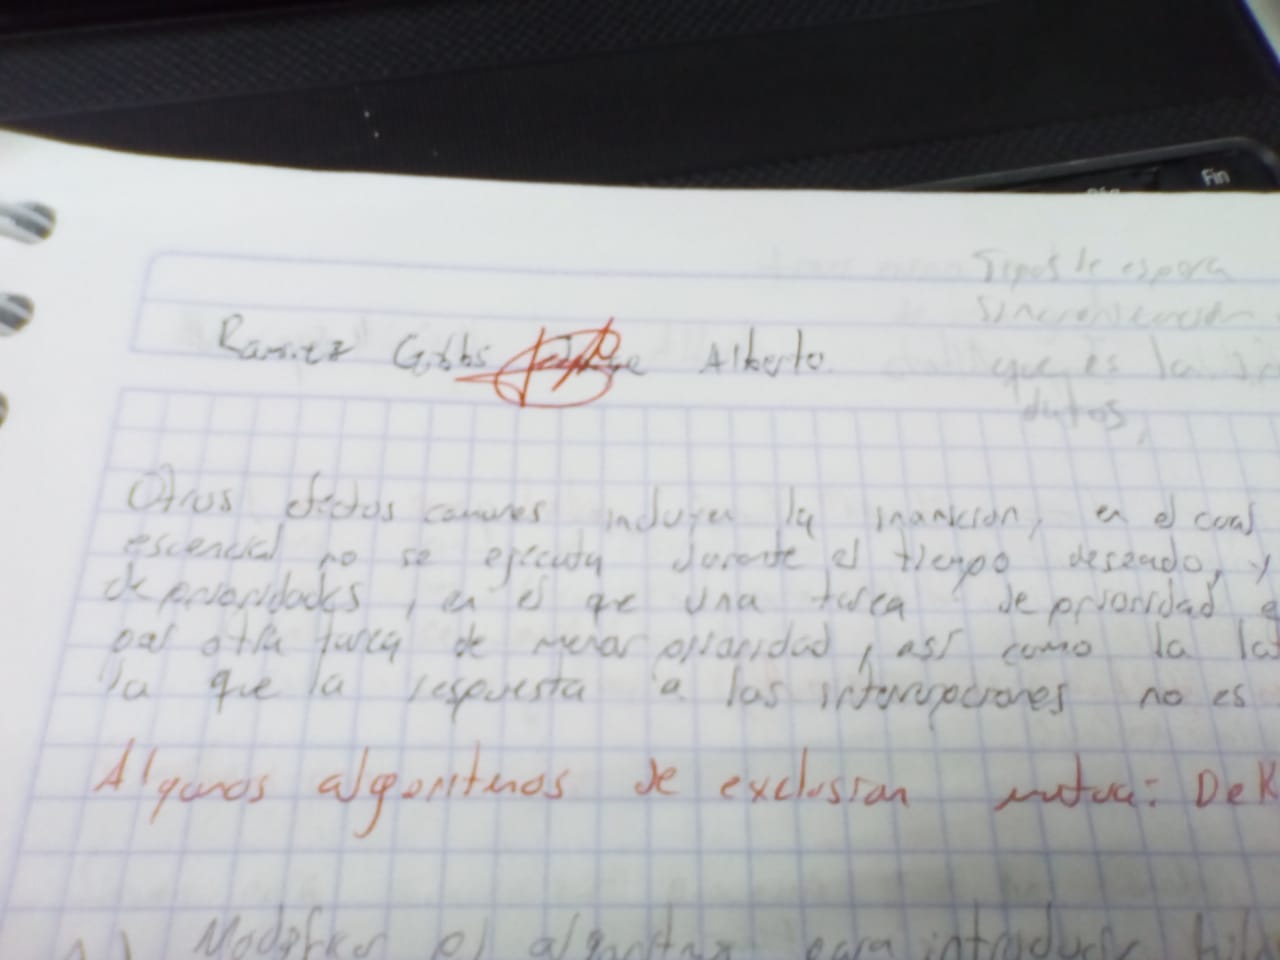 Fin
Tipos de espera
Sincronización
que es la
datos,
Ramirez Gibbs Alberto
Otros efectos comunes incluyen la inanición, en el cual
escencial no se ejecuta durante el tiempo deseado, y
de prioridades, en el que una tarea de prioridad
por otra tarea de menor prioridad, así como la
la que la respuesta a las interrupciones no es
Algunos algoritmos de exclusion mutua: DeK
Modificar el algoritmo para introducir